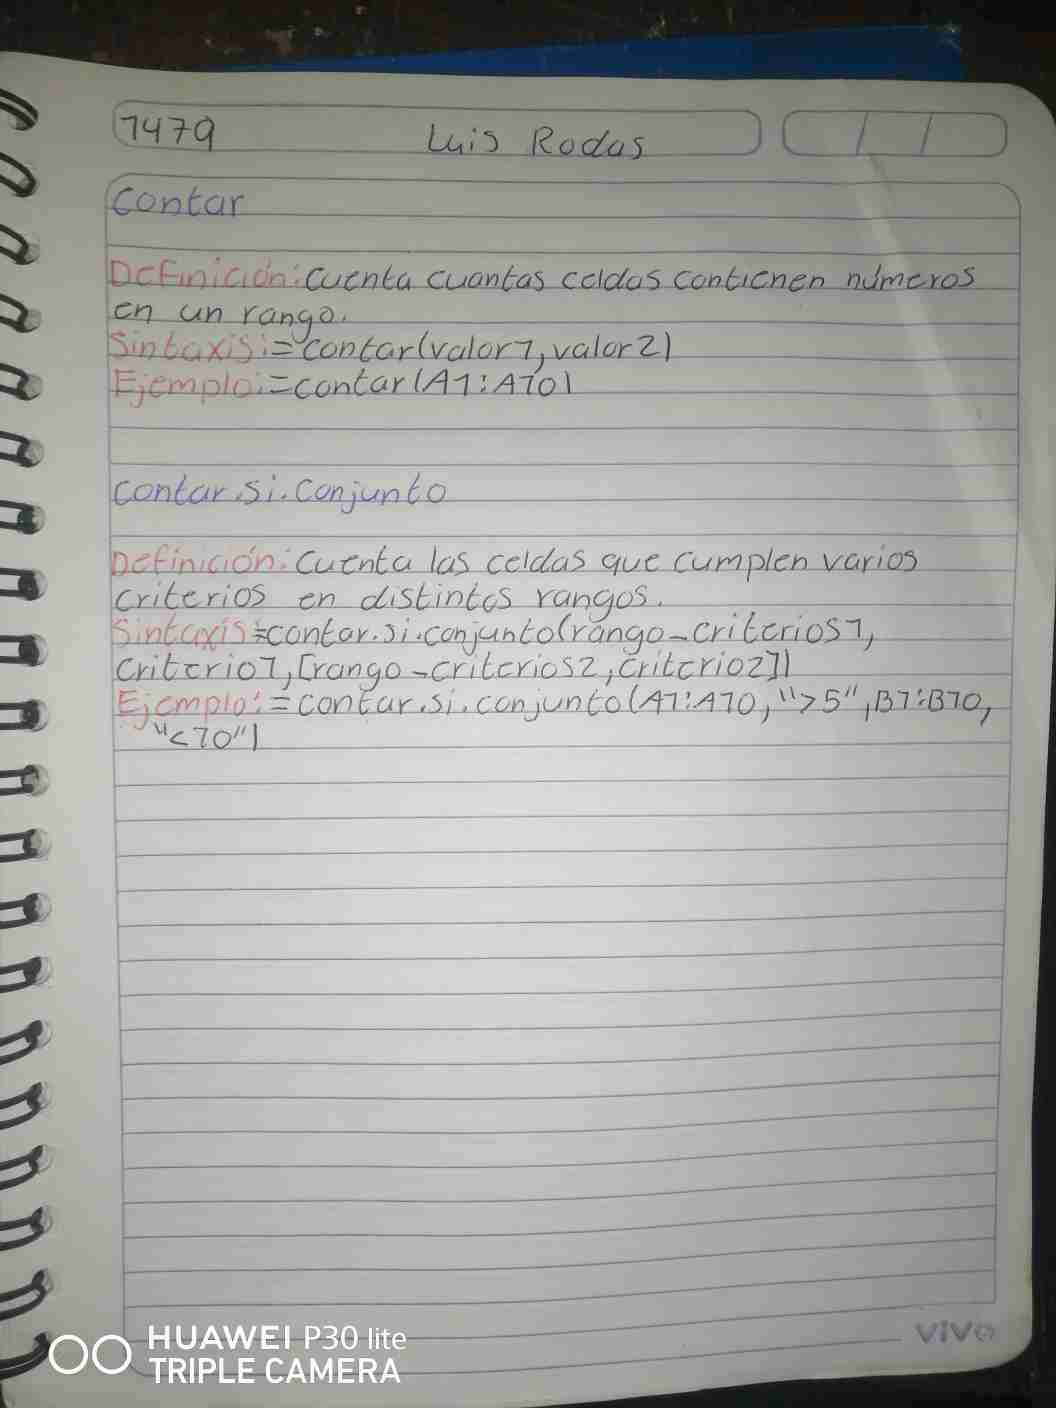 1479 Luis Rodas
Contar
Definición: Cuenta cuantas celdas contienen números
en un rango.
Sintaxis: =contar(valor1, valor2)
Ejemplo: =contar(A1:A10)
Contar.si.conjunto
Definición: Cuenta las celdas que cumplen varios
criterios en distintos rangos.
Sintaxis=contar.si.conjunto(rango-criterios1,
Criterio1,[rango-criterios2, criterio2])
Ejemplo: =contar.si.conjunto(A1:A10, ">5", B1:B10,
"<10")
vivo
HUAWEI P30 lite
TRIPLE CAMERA